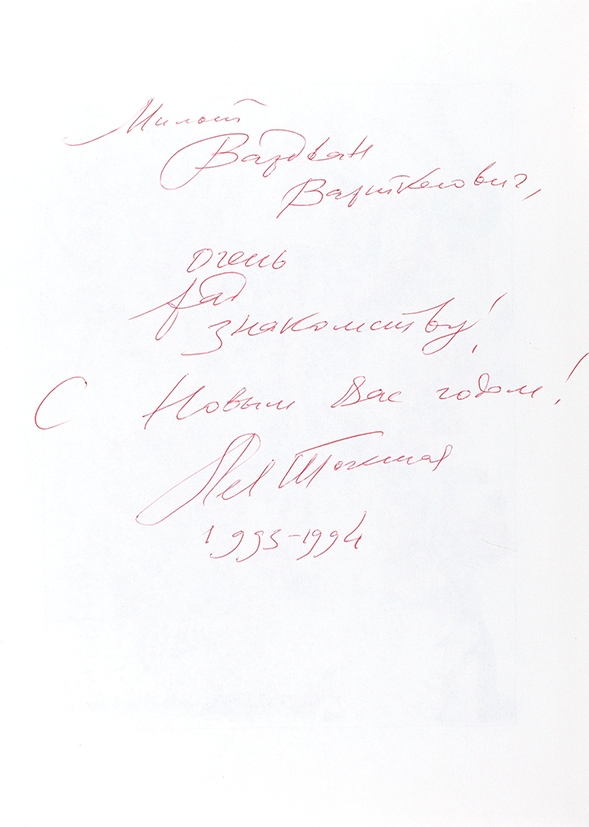 Милый
Варткесович,
очень
рад
знакомству!
С Новым Вас годом!
Лев Токмаков
1993-1994